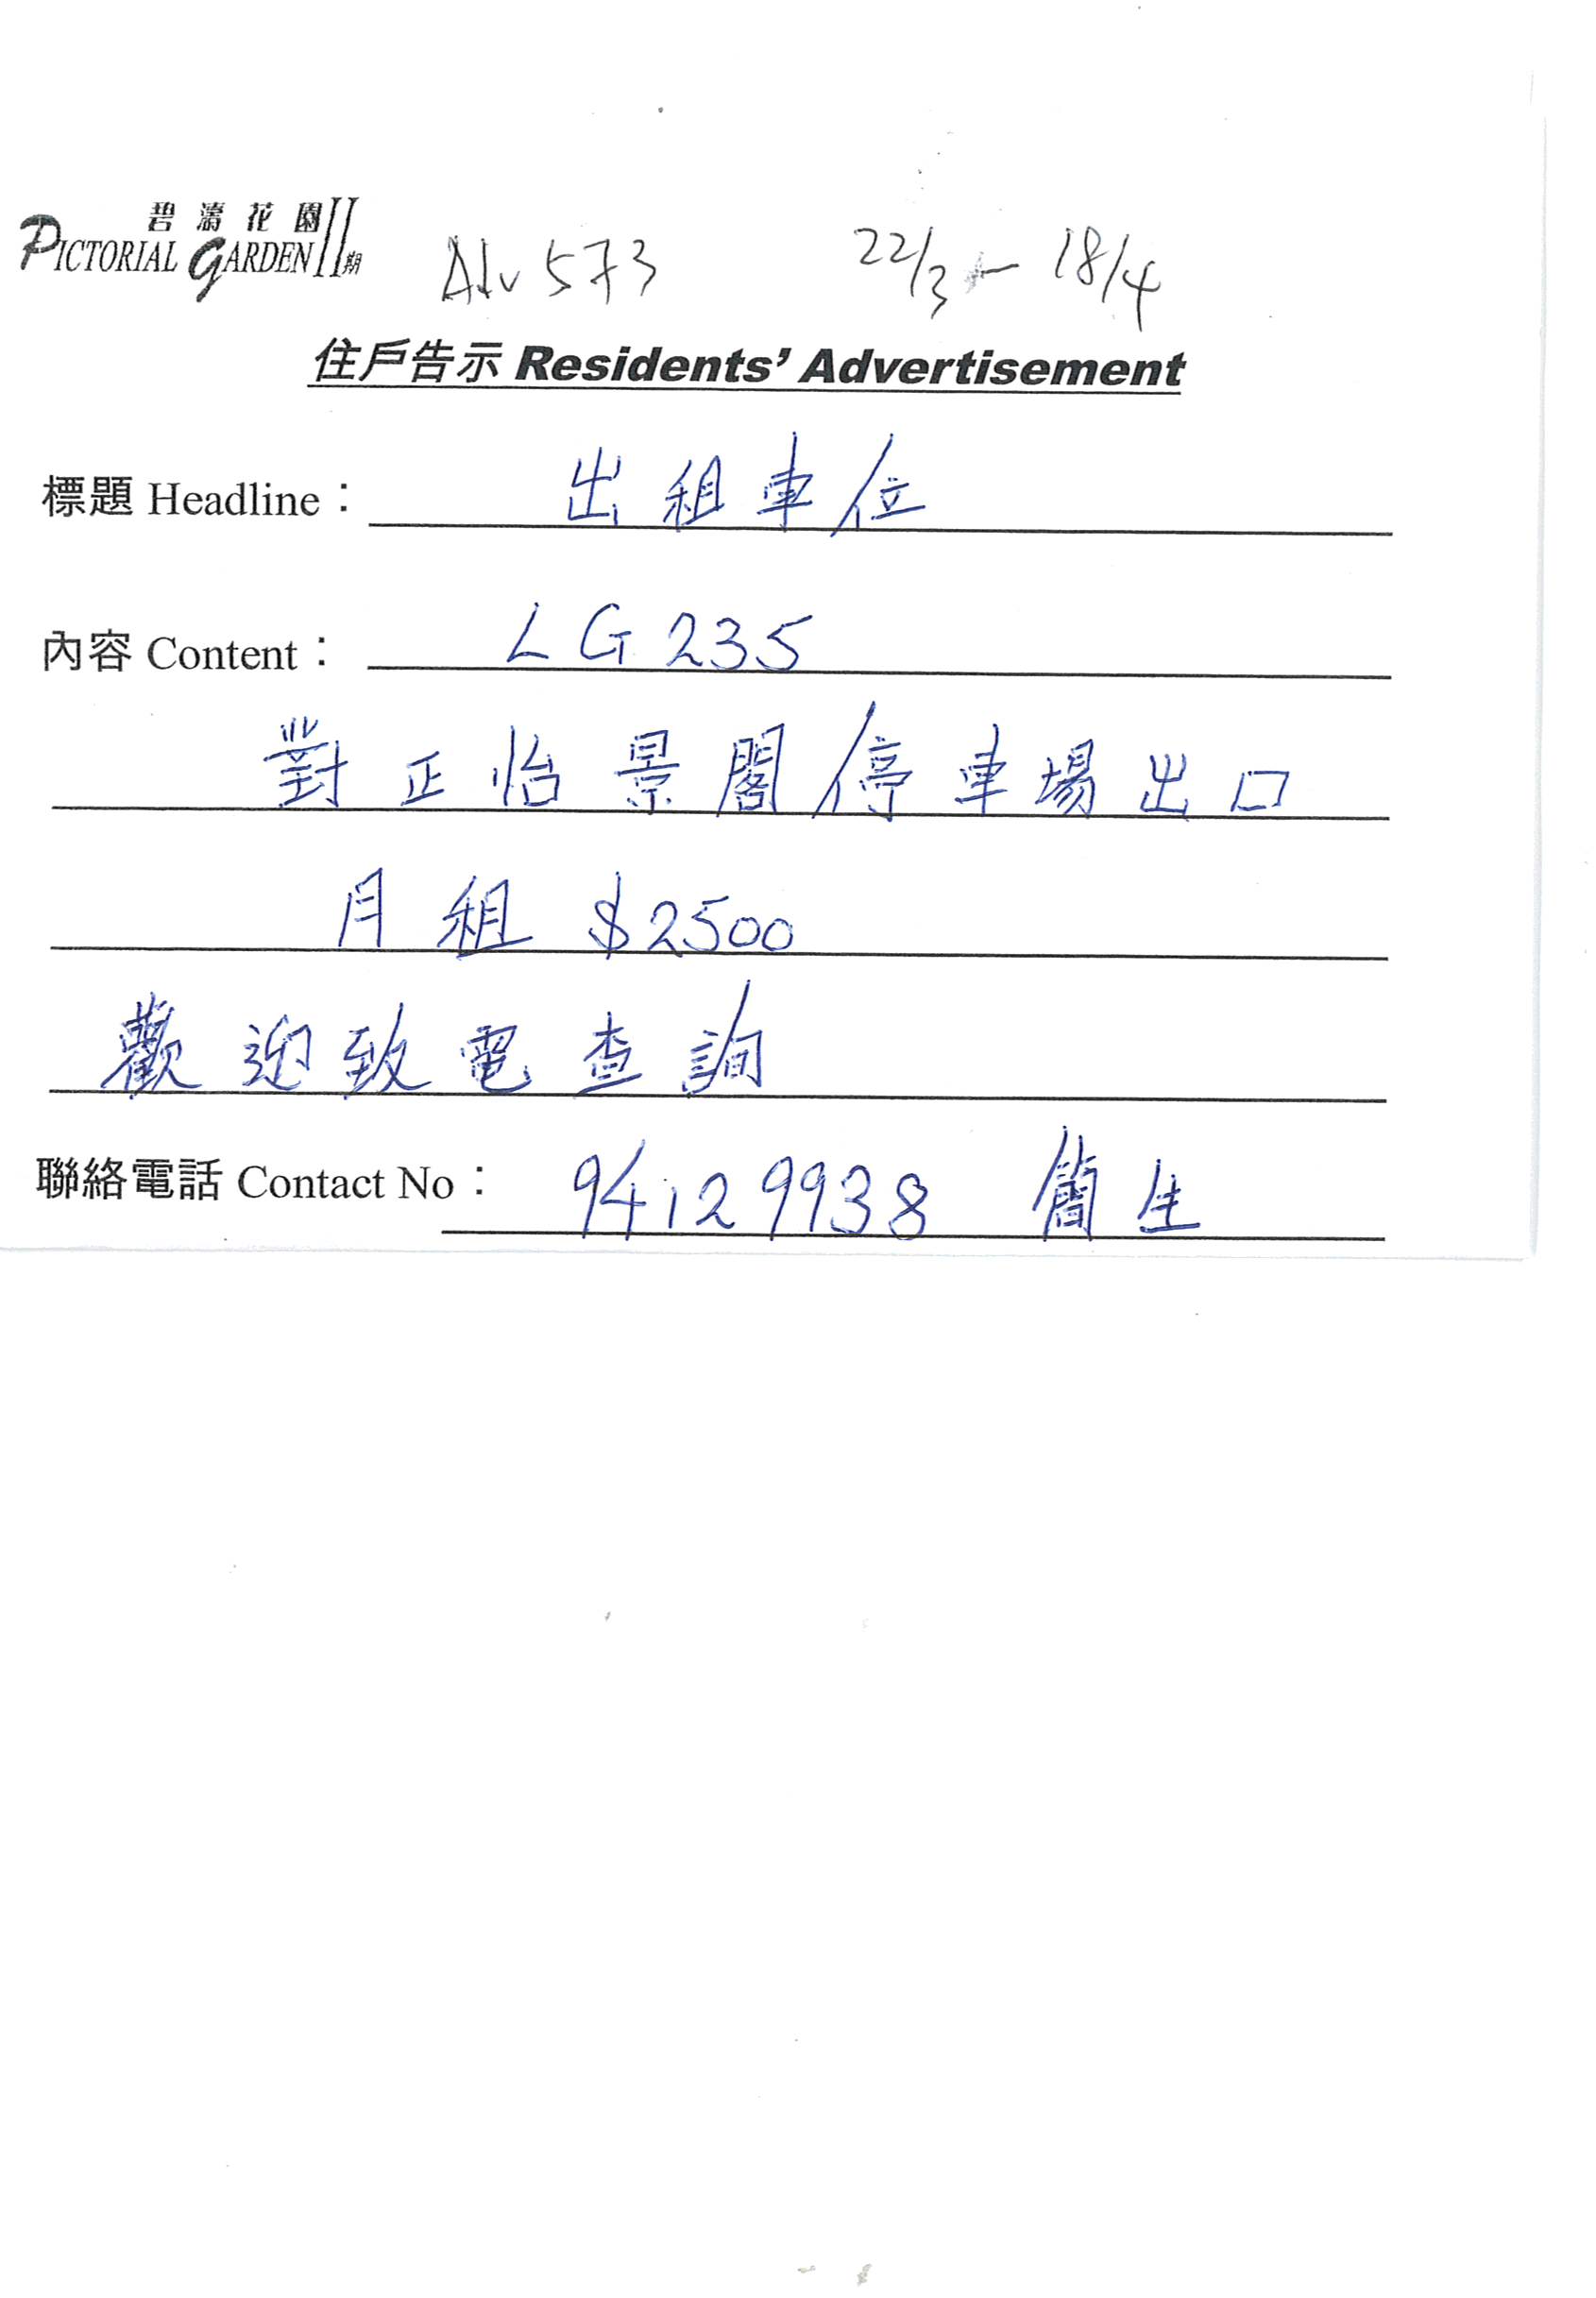 碧濤花園II期
PICTORIAL GARDEN
Adv 573
22/3 - 18/4
住戶告示 Residents' Advertisement
標題 Headline： 出租車位
內容 Content： LG235
對正怡景閣停車場出口
月租 $2500
歡迎致電查詢
聯絡電話 Contact No： 94129938 簡生